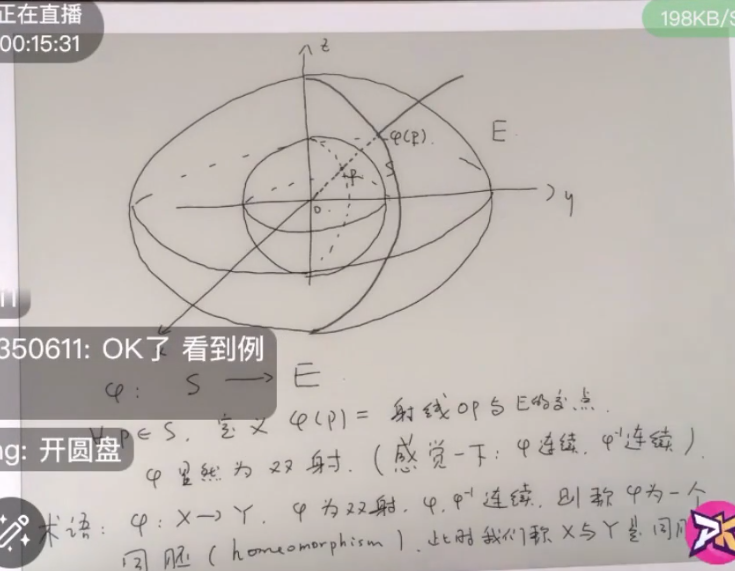 正在直播
00:15:31
198KB/S
z
φ(p)
E
S
p
o
y
350611: OK了 看到例
φ: S → E
∀p∈S, 定义 φ(p) = 射线 op 与 E的交点.
ng: 开圆盘
φ显然为双射. (感觉一下: φ连续, φ⁻¹连续).
术语: φ: X → Y, φ为双射, φ, φ⁻¹连续, 则称φ为一个
同胚 (homeomorphism), 此时我们称 X与Y是同胚
PK